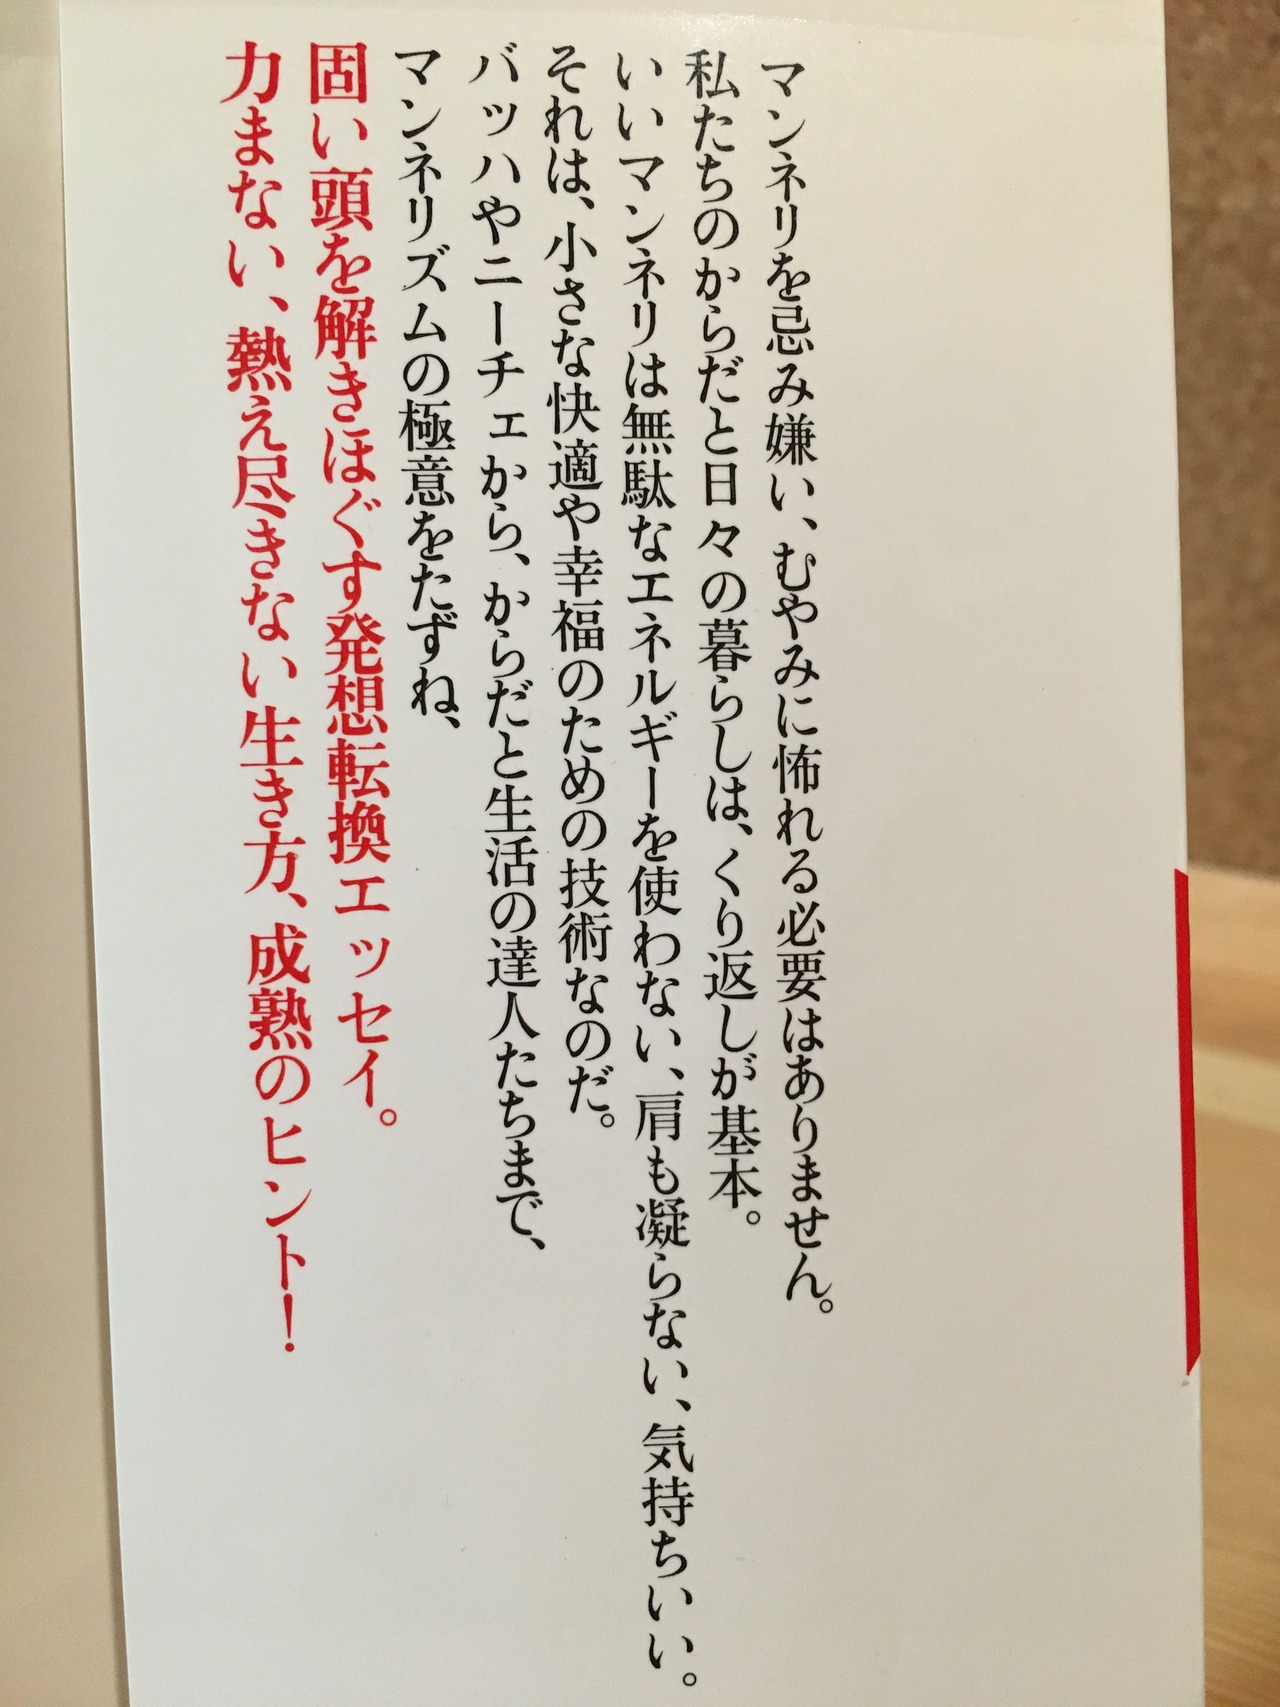 マンネリを忌み嫌い、むやみに怖れる必要はありません。
私たちのからだと日々の暮らしは、くり返しが基本。
いいマンネリは無駄なエネルギーを使わない、肩も凝らない、気持ちいい。
それは、小さな快適や幸福のための技術なのだ。
バッハやニーチェから、からだと生活の達人たちまで、
マンネリズムの極意をたずね、
固い頭を解きほぐす発想転換エッセイ。
力まない、熱え尽きない生き方、成熟のヒント!